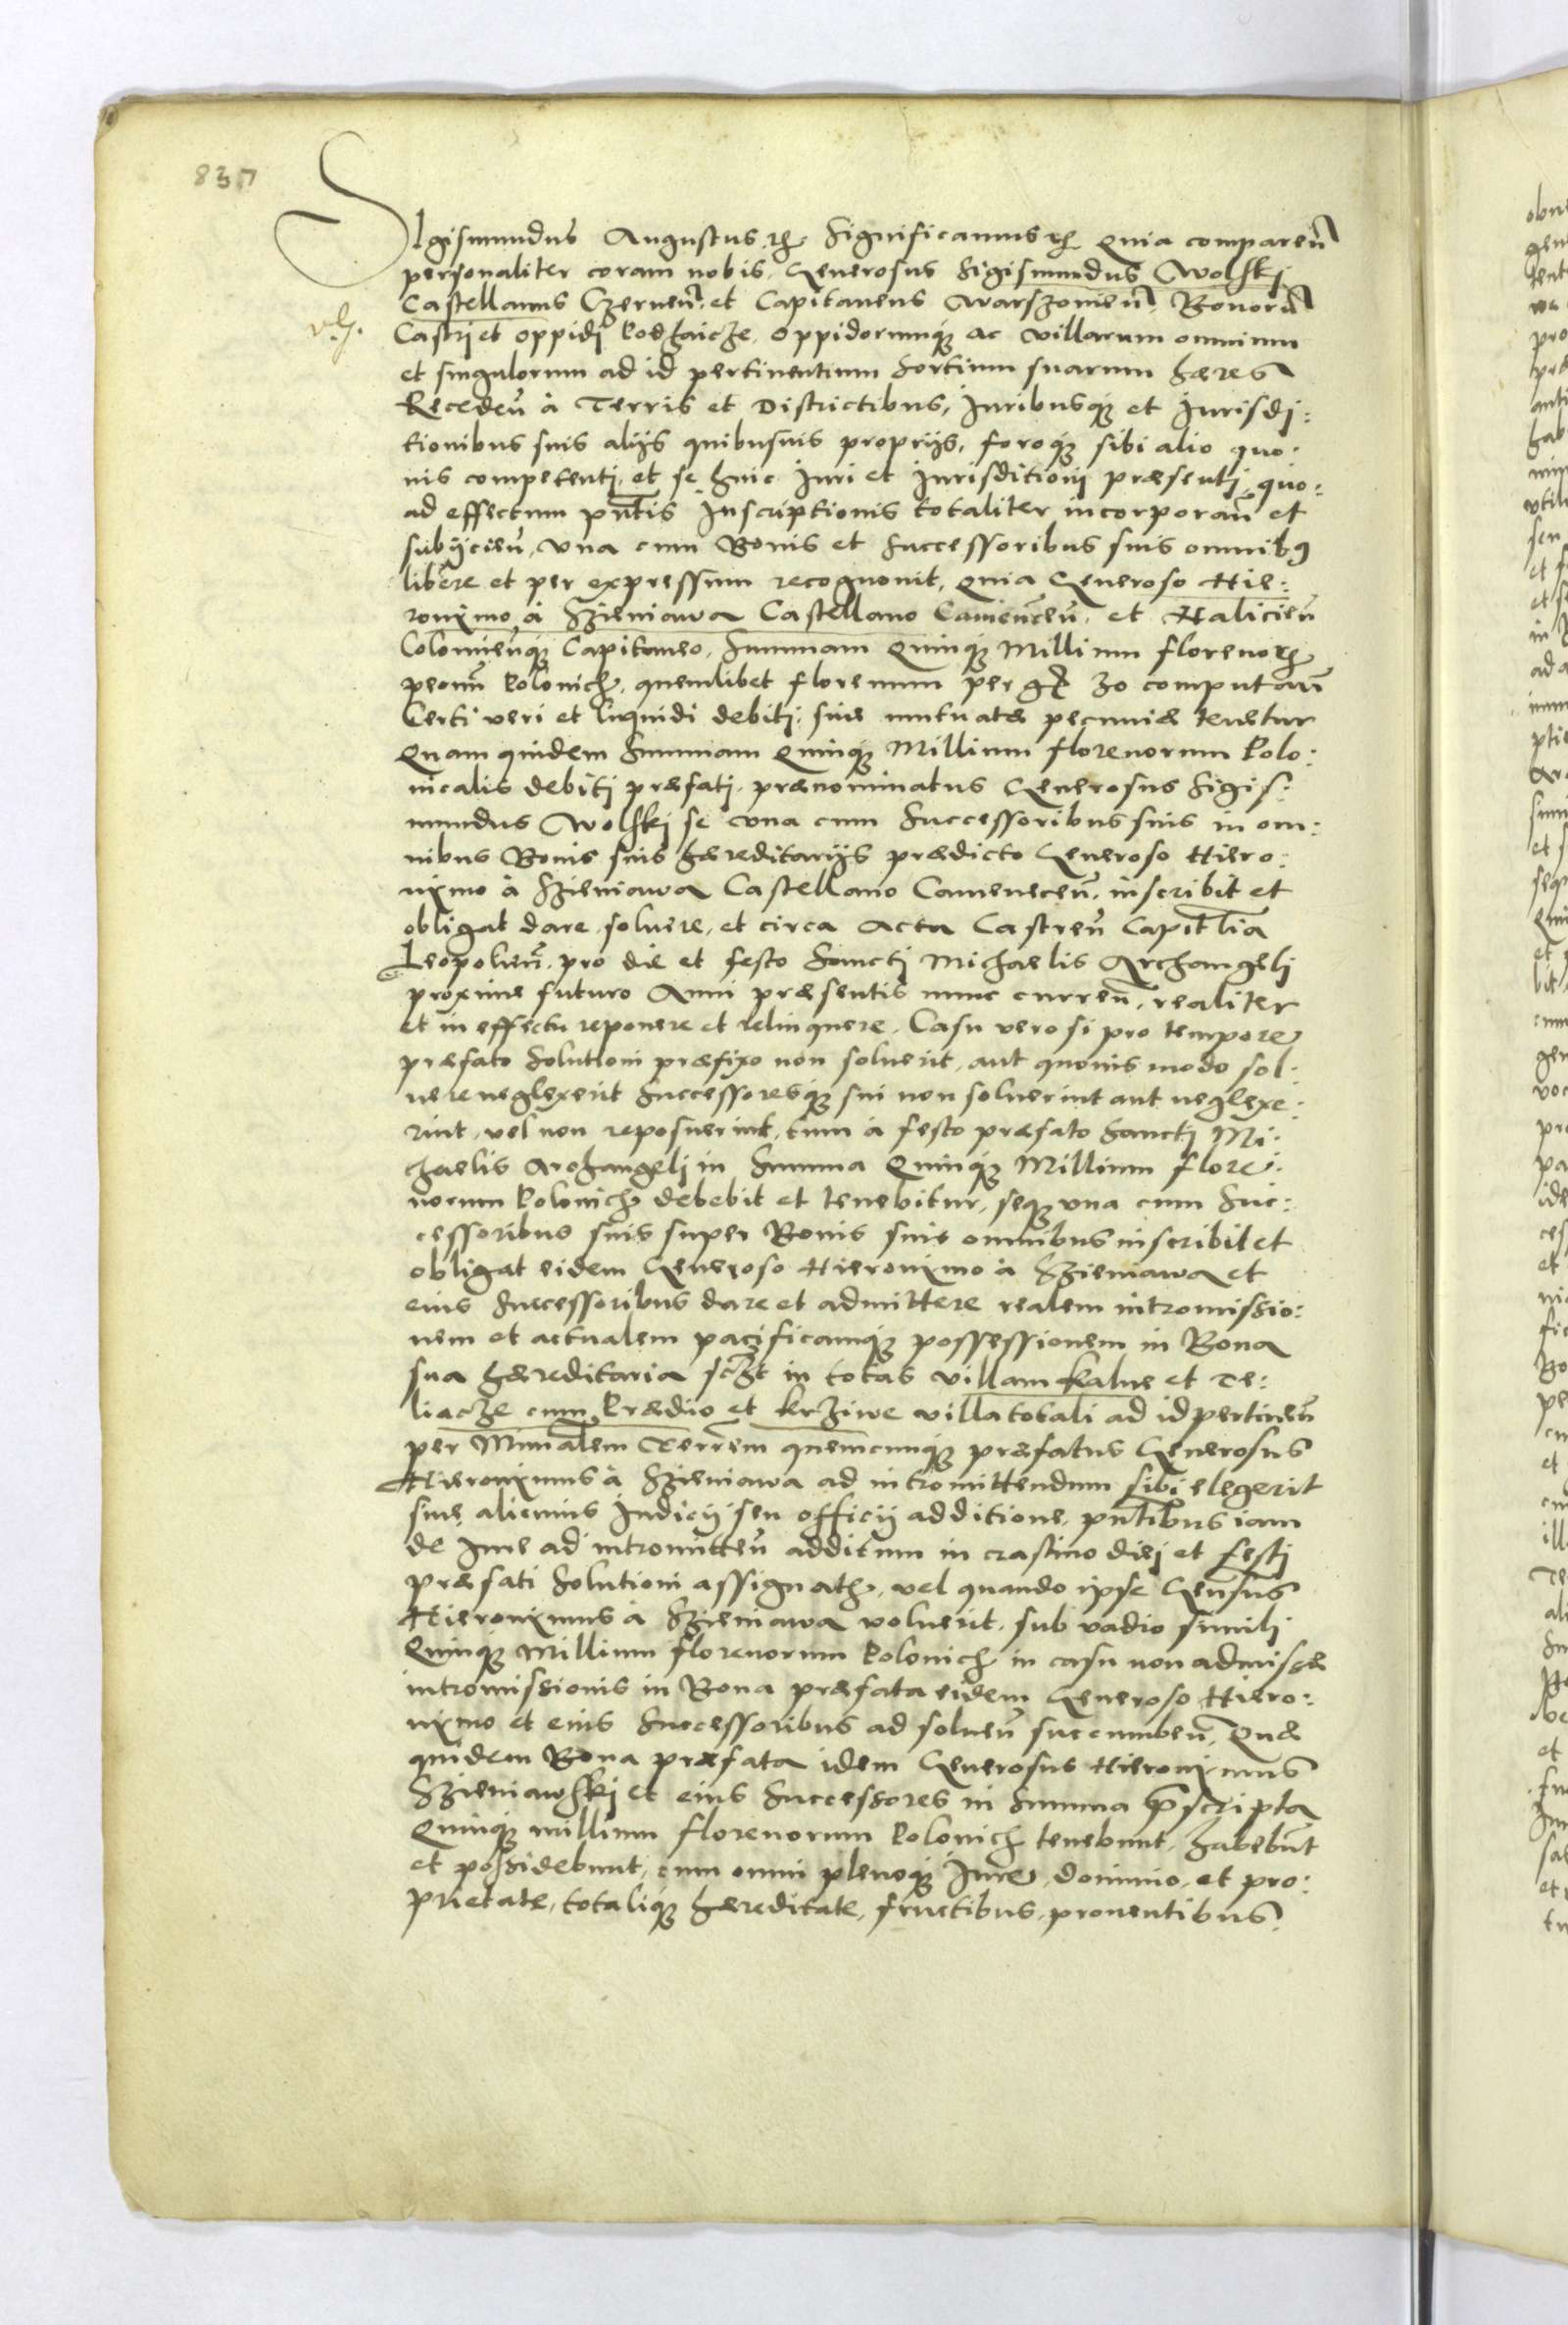 837
SIgismundus Augustus etc. Significamus etc. Quia comparen̄
personaliter coram nobis, Generosus Sigismundus Wolskj
Castellanus Czernen̄. et Capitaneus Warszouien̄. Bonorū
Castrj et oppidj Podhaicze, oppidorumq; ac villarum omnium
et singulorum ad id pertinentium Sortium suarum hæres
Receden̄ à Terris et Districtibus, Iuribusq; et Iurisdi:
tionibus suis alijs quibusuis proprijs, foroq; sibi alio quo:
uis competentj, et se huic Iuri et Iurisditionj præsentj quo:
ad effectum pn̄tis Inscriptionis totaliter incorporan̄ et
subijcien̄, Vna cum Bonis et Successoribus suis omnib9
libere et per expressum recognouit, Quia Generoso Hie:
ronimo à Szieniawa Castellano Camencen̄. et Halicien̄
Colomien̄q; Capitaneo, Summam Quinq; Millium florenor.
pecun̄ Polonich. quemlibet florenum per gr. 30 computan̄
Certi veri et liquidi debitj, siue mutuatæ pecuniæ tenetur
Quam quidem Summam Quinq; Millium florenorum Polo:
nicalis debitj præfatj, prænominatus Generosus Sigis:
mundus Wolskj se vna cum Successoribus suis in om:
nibus Bonis suis hæreditarijs prædicto Generoso Hiero:
nimo à Szieniawa Castellano Camenecen̄. inscribit et
obligat dare, soluere, et circa Acta Castren̄ Capit̄lia
Leopolien̄. pro die et festo Sanctj Michaelis Archangelj
proxime futuro Anni præsentis nunc curren̄, realiter
et in effectu reponere et relinquere. Casu vero si pro tempore
præfato Solutioni præfixo non soluerit, aut quouis modo sol:
uere neglexerit Successoresq; sui non soluerint aut neglexe:
rint, vel non reposuerint, tum à festo præfato Sanctj Mi:
chaelis Archangelj in Summa Quinq; Millium flore:
norum Polonich. debebit et tenebitur, seq; vna cum Suc:
cessoribus suis super Bonis suis omnibus inscribit et
obligat eidem Generoso Hieronimo à Szieniawa et
eius Successoribus dare et admittere realem intromissio:
nem et actualem pacificamq; possessionem in Bona
sua hæreditaria sc̄ht in totas villam Kalne et Te:
liacze cum Prædio et Krziwe villa totali ad id pertinen̄
per Min̄alem Terrēm quemcunq; præfatus Generosus
Hieronimus à Szieniawa ad intromittendum sibi elegerit
siue alicuius Iudicij seu officij additione, pn̄tibus iam
de Iure ad intromitten̄ additum in crastino diej et festj
præfati Solutioni assignath. vel quando ipse Gen̄sus
Hieronimus à Szieniawa voluerit, sub vadio similj
Quinq; Millium florenorum Polonich. in casu non admissæ
intromissionis in Bona præfata eidem Generoso Hiero:
nimo et eius Successoribus ad soluen̄ succumben̄. Quæ
quidem Bona præfata idem Generosus Hieronimus
Szieniawskj et eius Successores in Summa p̄scripta
Quinq; millium florenorum Polonich. tenebunt, habebūt
et possidebunt, cum omni plenoq; Iure, dominio, et pro:
prietate, totaliq; hæreditate, fructibus, prouentibus